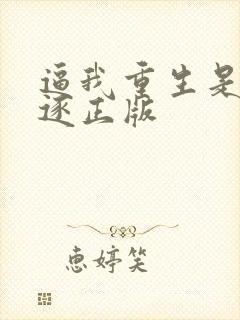 逼我重生是
逐正版
恵婷笑